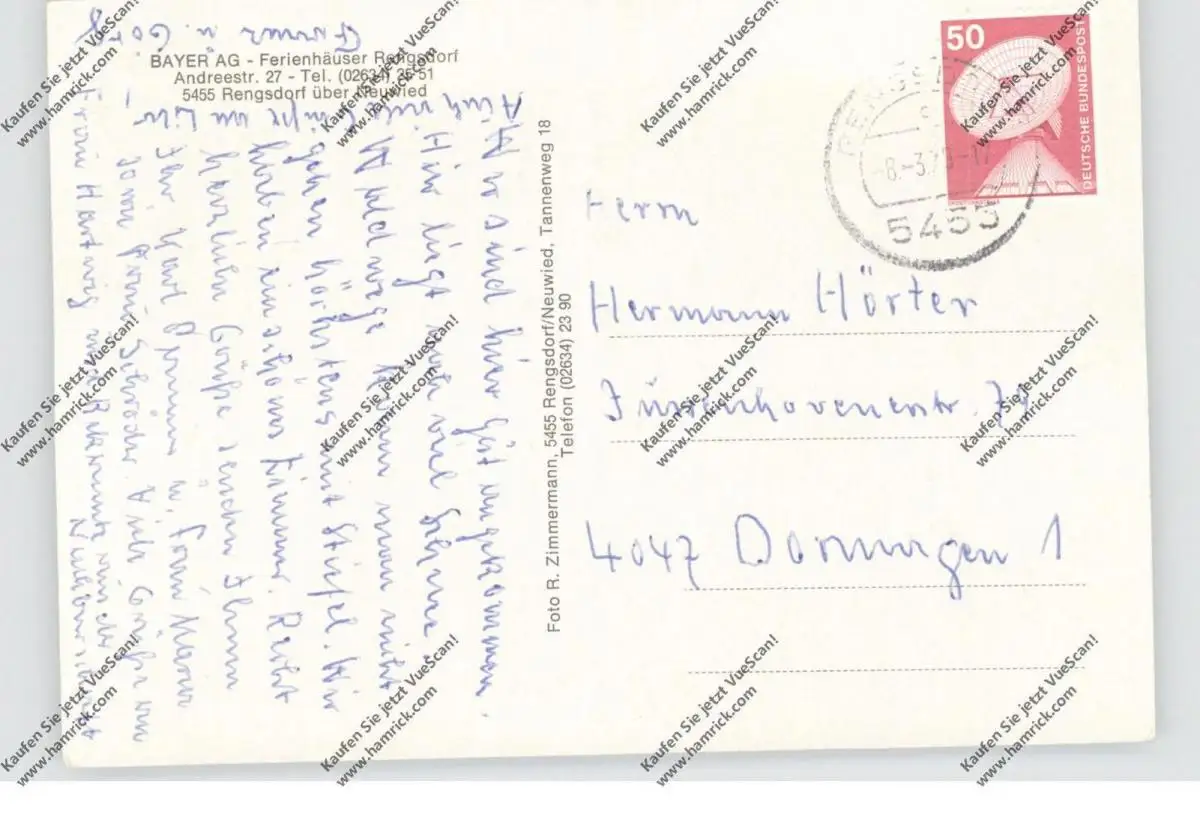 BAYER AG - Ferienhäuser Rengsdorf
Andreestr. 27 - Tel. (02634) 35 51
5455 Rengsdorf über Neuwied
Wir sind hier gut angekommen.
Hier liegt noch viel Schnee.
Waldwege kann man nicht
gehen höchstens mit Stiefel. Wir
haben ein schönes Zimmer. Recht
herzliche Grüße senden Ihnen
Ihr Karl u. Frau
Frau Schröder. Viele Grüße an
Frau Hartwig
Auch viele Grüße an
Foto R. Zimmermann, 5455 Rengsdorf/Neuwied, Tannenweg 18
Telefon (02634) 23 90
50
DEUTSCHE BUNDESPOST
5455
Herrn
Hermann Hörter
4047 Dormagen 1
Kaufen Sie jetzt VueScan!
www.hamrick.com
Kaufen Sie jetzt VueScan!
www.hamrick.com
Kaufen Sie jetzt VueScan!
www.hamrick.com
Kaufen Sie jetzt VueScan!
www.hamrick.com
Kaufen Sie jetzt VueScan!
www.hamrick.com
Kaufen Sie jetzt VueScan!
www.hamrick.com
Kaufen Sie jetzt VueScan!
www.hamrick.com
Kaufen Sie jetzt VueScan!
www.hamrick.com
Kaufen Sie jetzt VueScan!
www.hamrick.com
Kaufen Sie jetzt VueScan!
www.hamrick.com
Kaufen Sie jetzt VueScan!
www.hamrick.com
Kaufen Sie jetzt VueScan!
www.hamrick.com